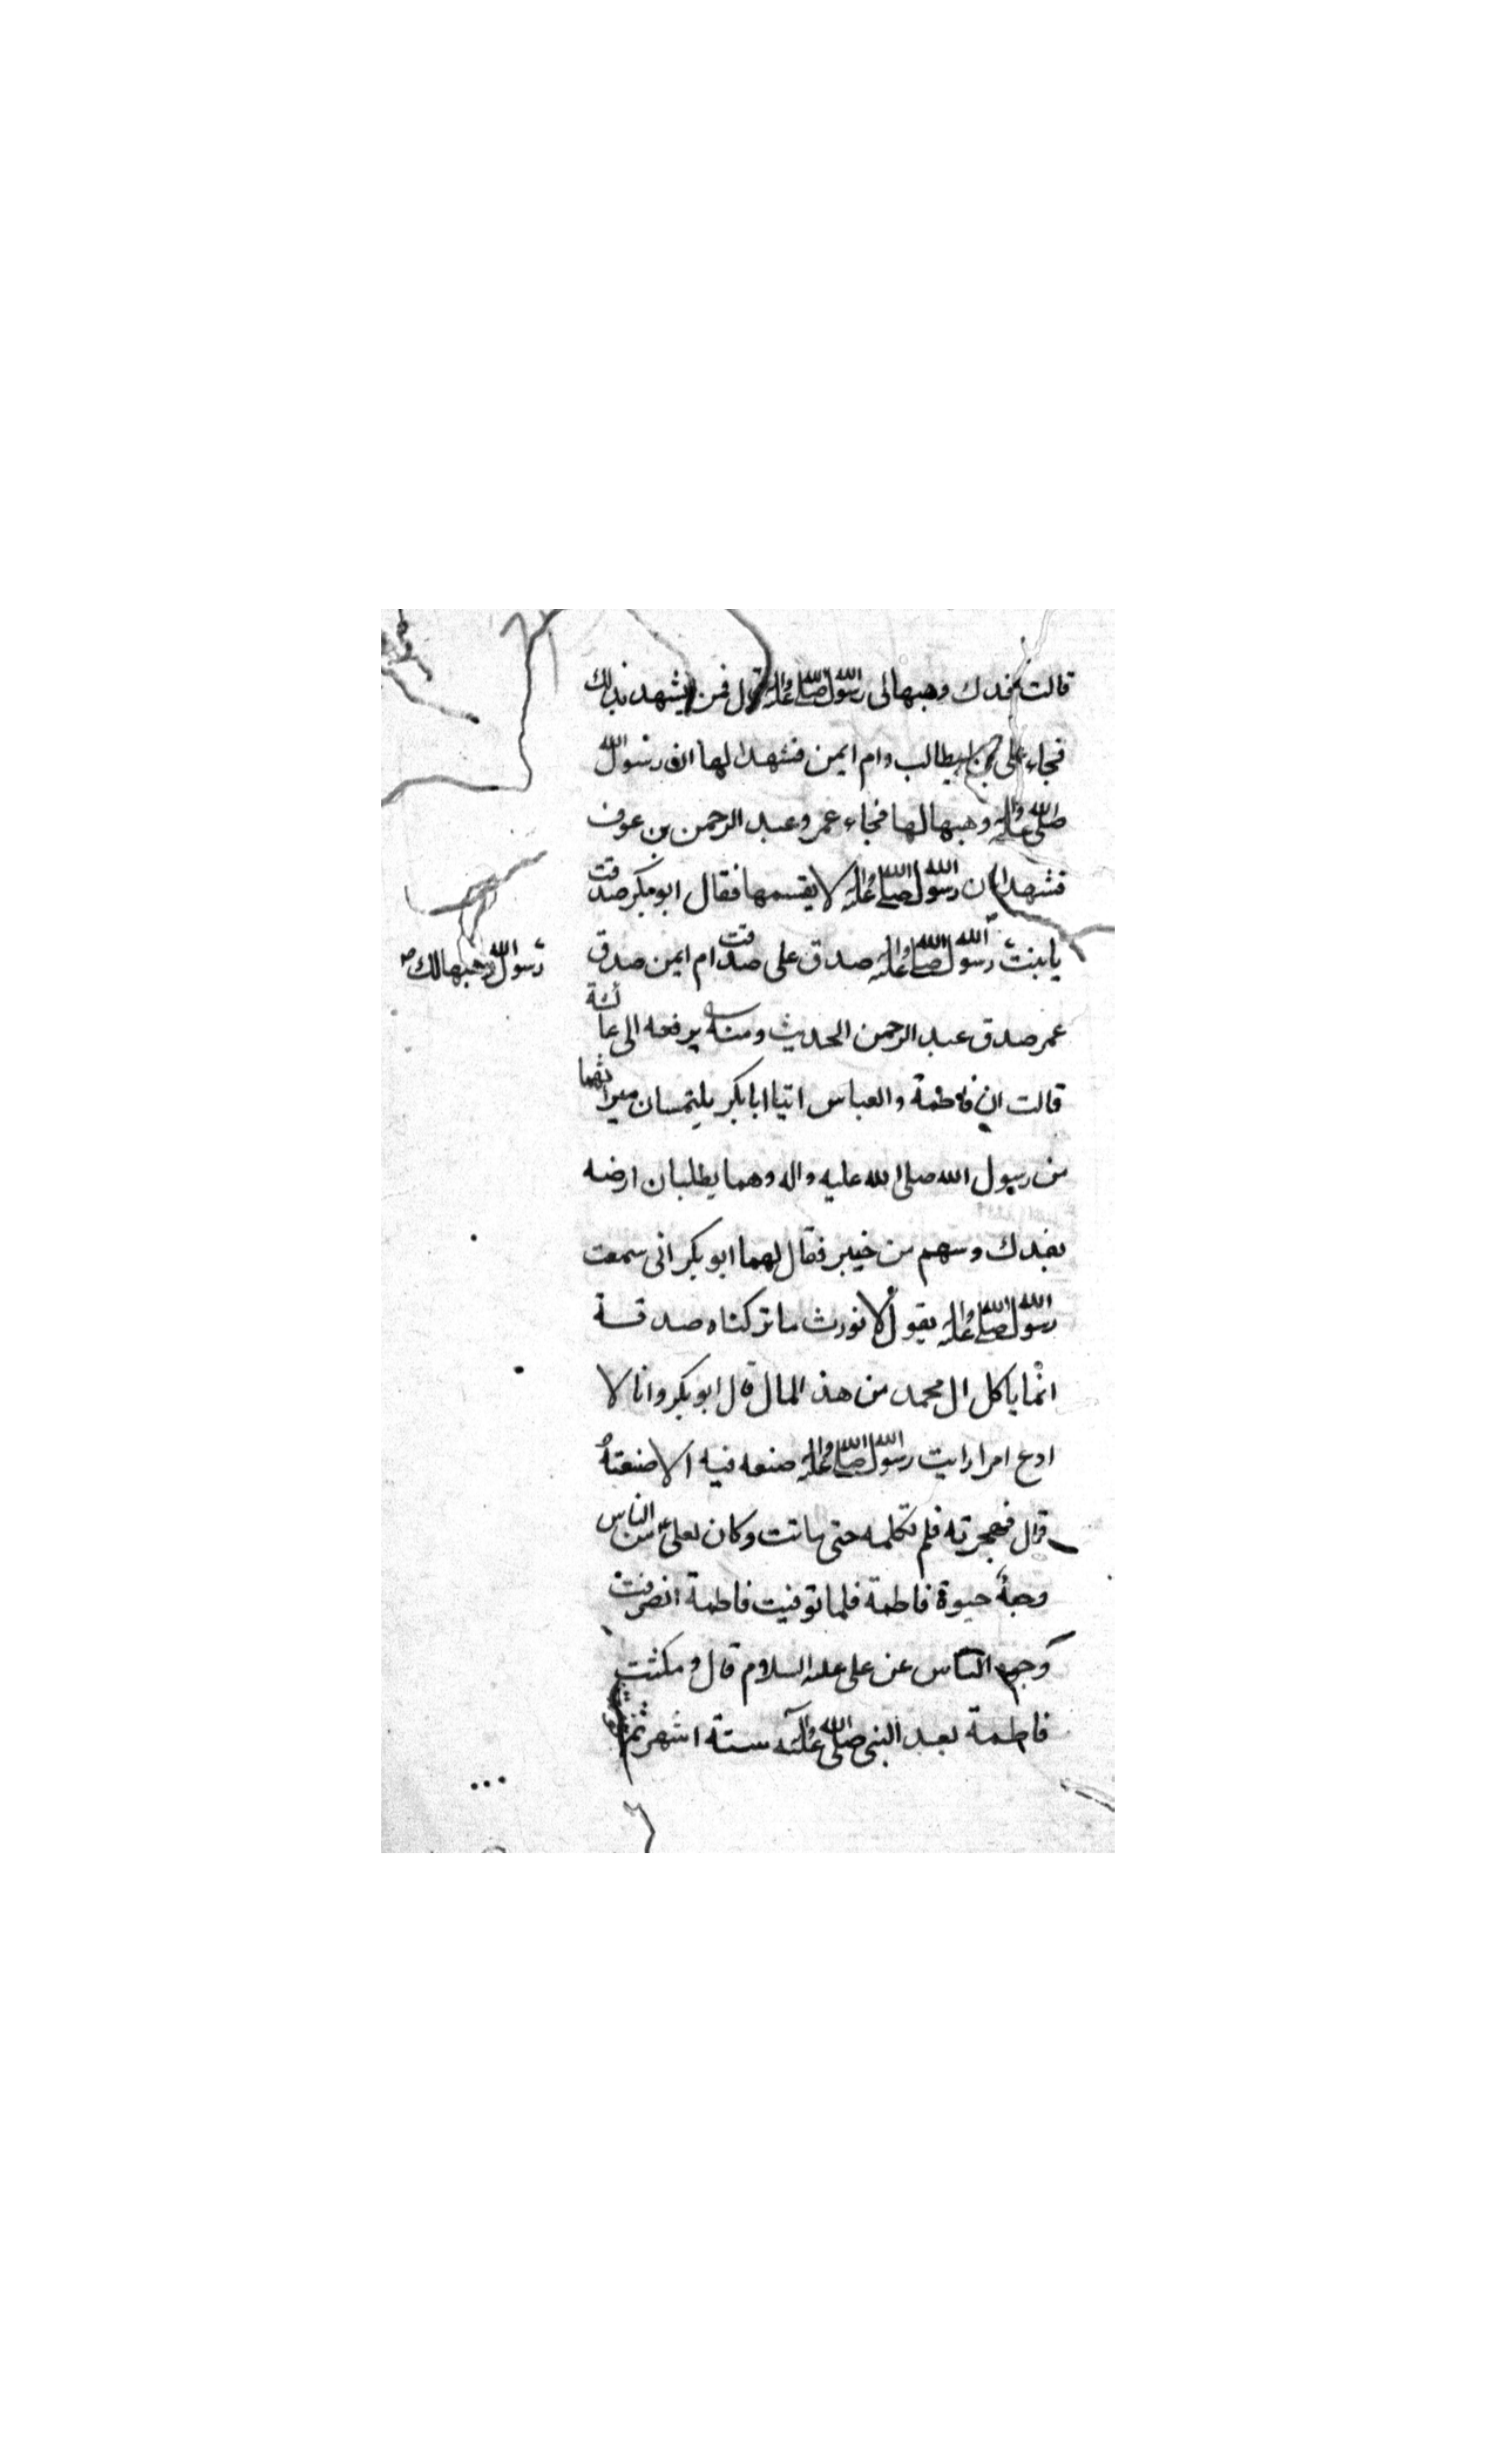 قالت فدك وهبها لى رسول الله صلى الله عليه واله قال فمن يشهد بذلك
فجاء على بن ابيطالب وام ايمن فشهدا لها ان رسول الله
صلى الله عليه واله وهبها لها فجاء عمر وعبد الرحمن بن عوف
فشهدا ان رسول الله صلى الله عليه واله لا يقسمها فقال ابوبكر صدقت
يا بنت رسول الله صلى الله عليه واله صدق على صدقت ام ايمن صدق
رسول الله وهبها لك
عمر صدق عبد الرحمن الحديث ومنه يرفعه الى عائشة
قالت ان فاطمة والعباس اتيا ابابكر يلتمسان ميراثهما
من رسول الله صلى الله عليه واله وهما يطلبان ارضه
بفدك وسهم من خيبر فقال لهما ابوبكر انى سمعت
رسول الله صلى الله عليه واله يقول لا نورث ما تركناه صدقة
انما ياكل ال محمد من هذ المال قال ابوبكر وانا لا
ادع امرا رايت رسول الله صلى الله عليه واله صنعه فيه الا صنعته
قال فهجرته فلم تكلمه حتى ماتت وكان لعلى من الناس
وجه حيوة فاطمة فلما توفيت فاطمة انصرفت
وجوه الناس عن على عليه السلام قال ومكثت
فاطمة بعد النبى صلى الله عليه واله ستة اشهر ثم